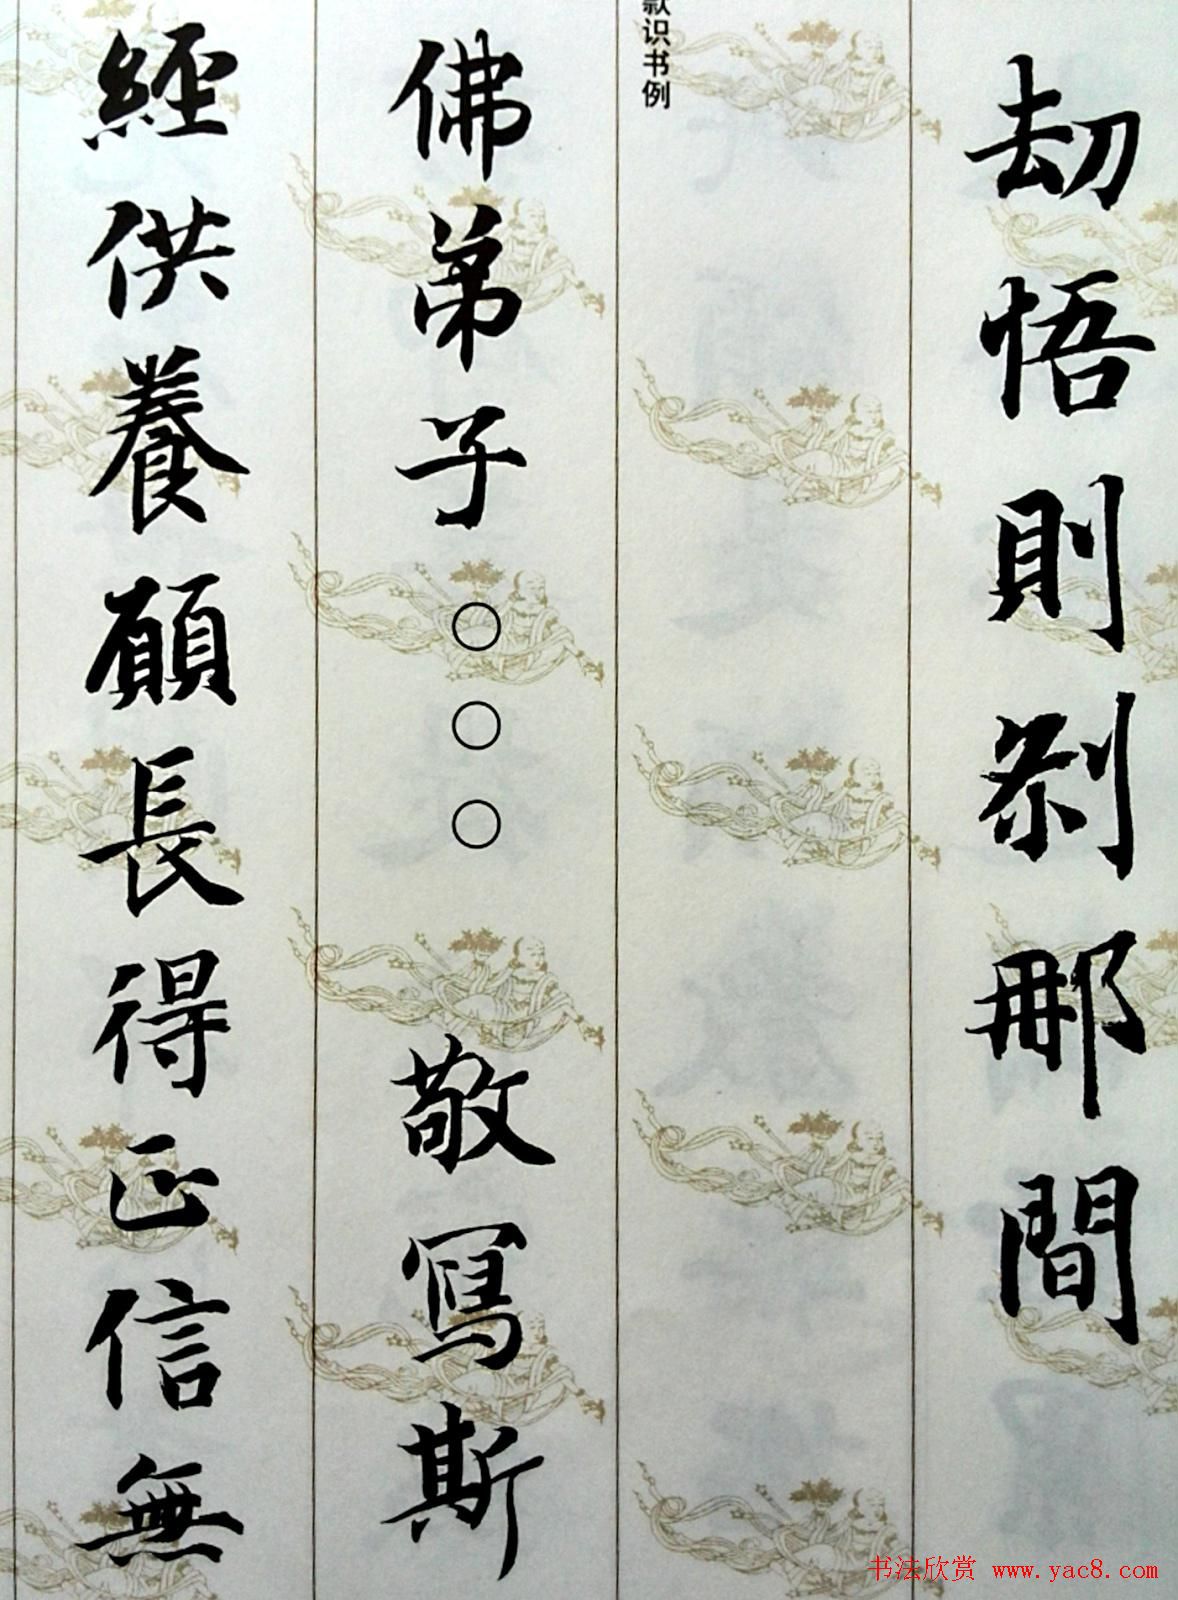 刼悟則剎那間
款识书例
佛弟子○○○敬寫斯
經供養願長得正信無
书法欣赏 www.yac8.com